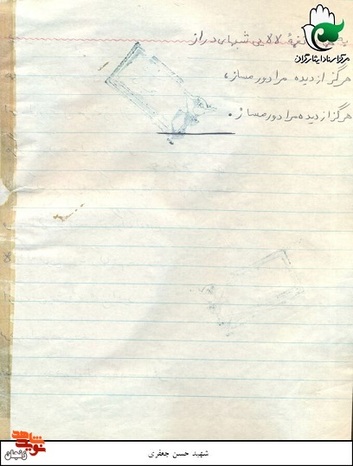 مرکز اسناد ایثارگران
لالایی شبهای دراز
هرگز از دیده مرا دور مساز،
هرگز از دیده مرا دور مساز.
نوید شاهد
شهید حسن جعفری